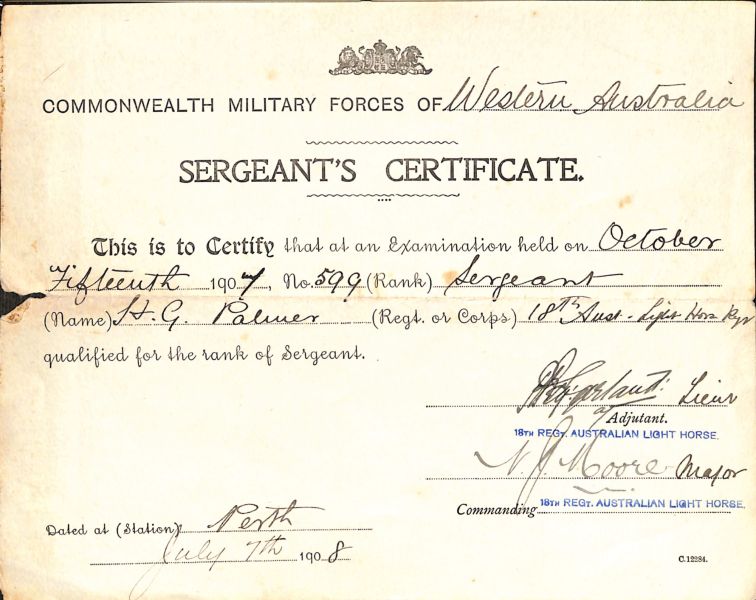 COMMONWEALTH MILITARY FORCES OF Western Australia
SERGEANT'S CERTIFICATE.
This is to Certify that at an Examination held on October
Fifteenth 1907, No. 599 (Rank) Sergeant
(Name) H. G. Palmer (Regt. or Corps) 18th Aust. Light Horse Rgt
qualified for the rank of Sergeant.
Lieut
Adjutant.
18TH REGT. AUSTRALIAN LIGHT HORSE.
N. J. Moore Major
Commanding 18TH REGT. AUSTRALIAN LIGHT HORSE.
Dated at (Station) Perth
July 7th 1908
C.12284.